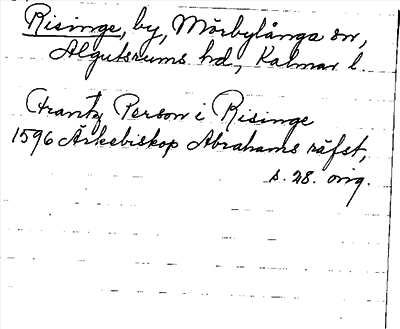 Risinge, by, Mörbylånga sn,
Algutsrums hd, Kalmar l.
Frantz Person i Risinge
1596 Ärkebiskop Abrahams räfst,
s. 28. orig.